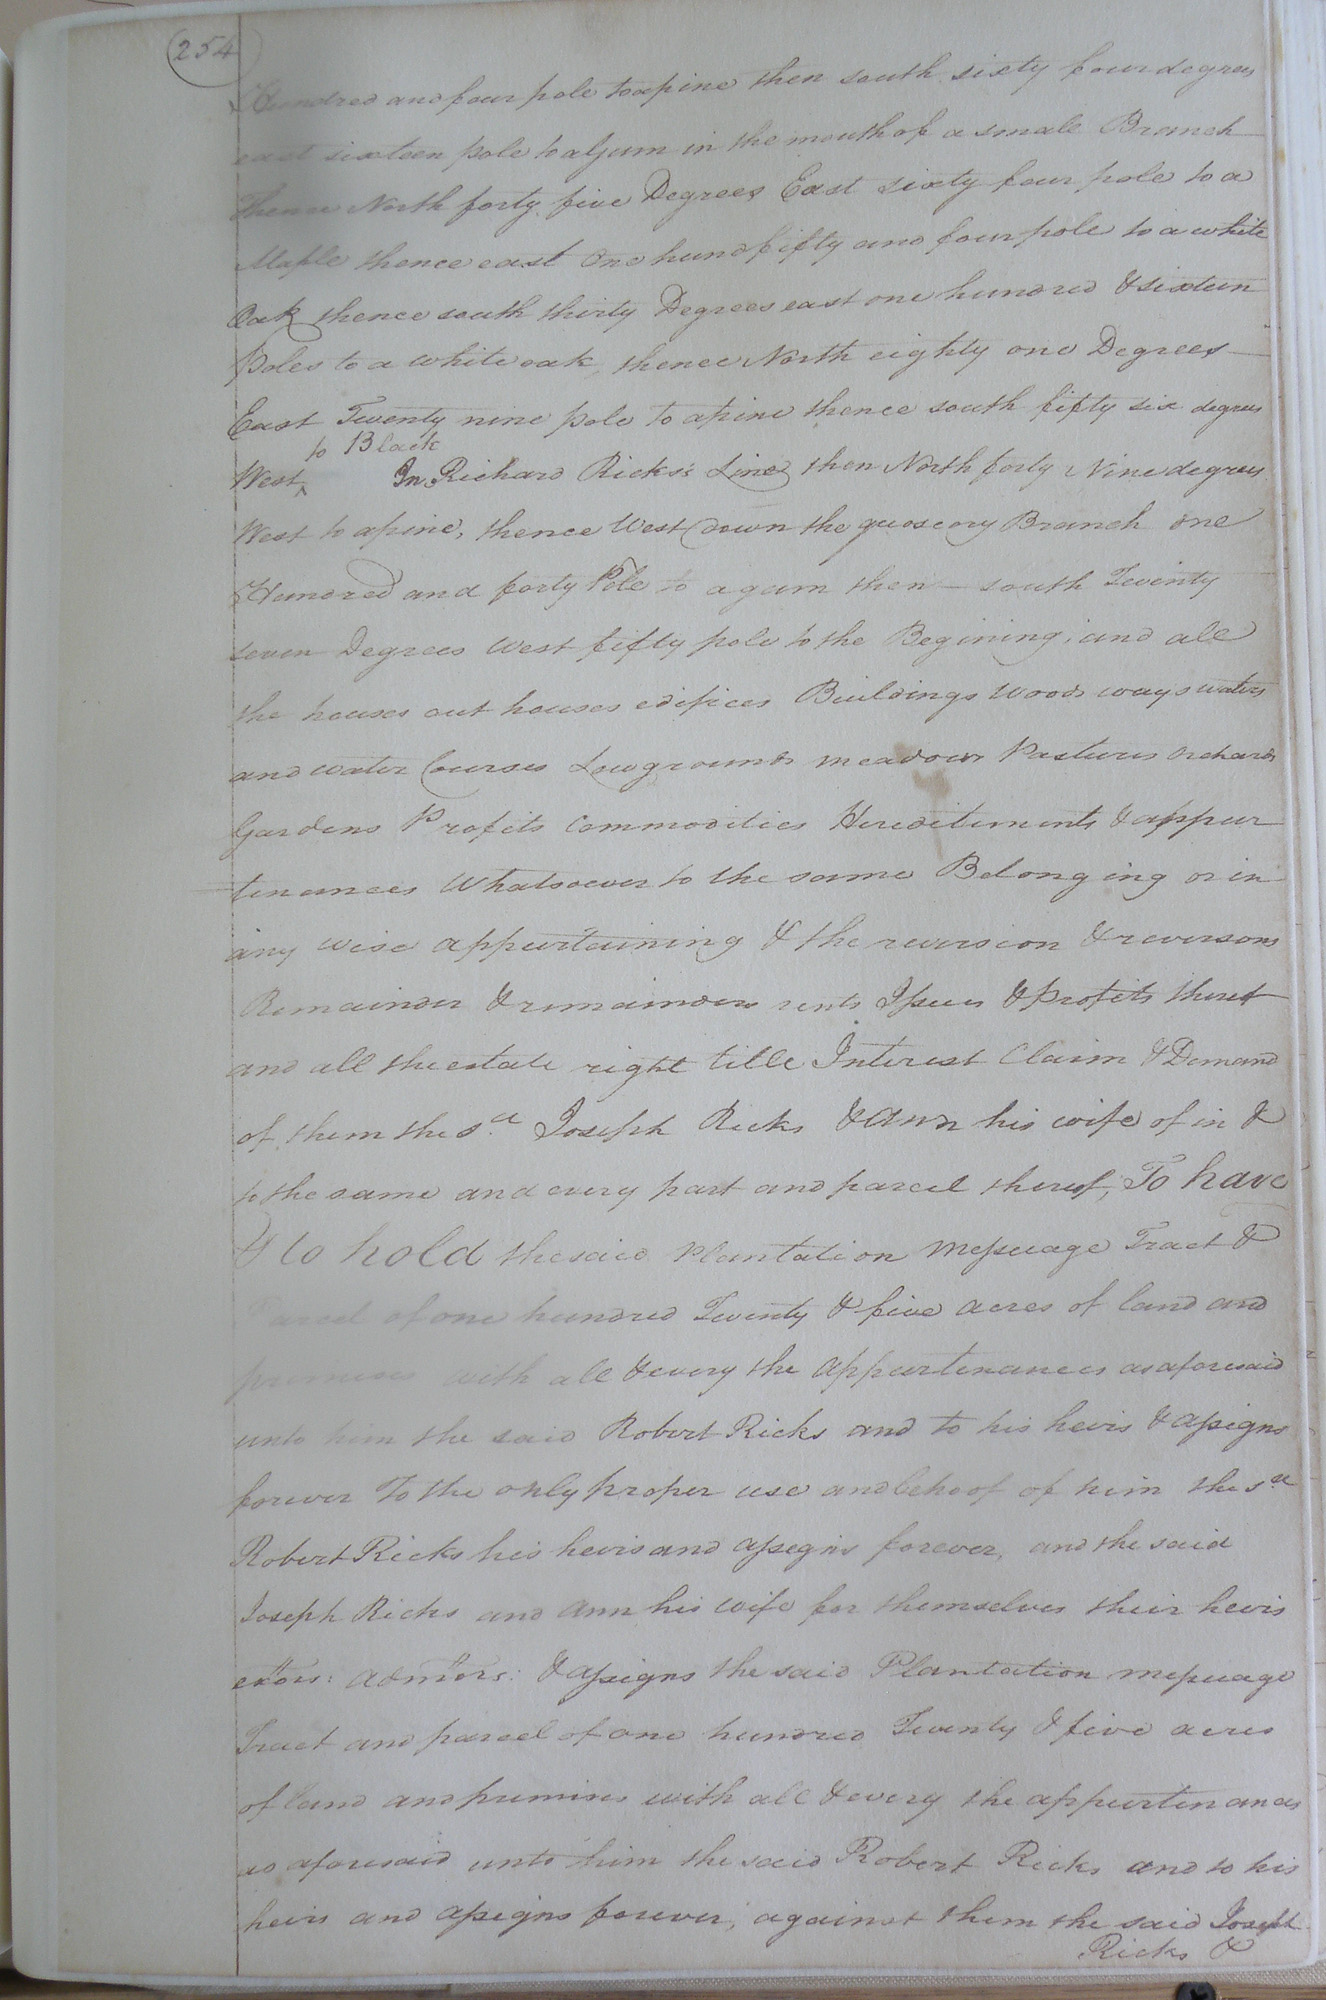 254
Hundred and four pole to a pine then south sixty four degrees
east sixteen pole to a gum in the mouth of a small Branch
Thence North forty five Degrees East sixty four pole to a
Maple thence east One hund fifty and four pole to a white
Oak thence south thirty Degrees east one hundred & sixteen
Poles to a white oak, thence North eighty one Degrees
East Twenty nine pole to a pine thence south fifty six degrees
to Black
West ^ In Richard Ricks's Line then North forty Nine degrees
West to a pine, thence West down the Branch one
Hundred and forty Pole to a gum then south Twenty
seven Degrees West fifty pole to the Begining; and all
the houses out houses edifices Buildings Woods ways waters
and water Courses Lowgrounds meadows Pastures Orchards
Gardens Profits Commodities Hereditiments & appur
tenances Whatsoever to the same Belonging or in
any wise appurtaining & the reversion & reversons
Remainder & remainders rents Issues & profits thereof
and all the estate right title Interest Claim & Demand
of them the sd Joseph Ricks & Ann his wife of in &
to the same and every part and parcel thereof, To have
& to hold the said Plantation Messuage Tract &
Parcel of one hundred Twenty & five acres of land and
premises with all & every the appurtenances as aforesaid
unto him the said Robert Ricks and to his heirs & assigns
forever To the only proper use and behoof of him the sd
Robert Ricks his heirs and assigns forever, and the said
Joseph Ricks and Ann his wife for themselves their heirs
exors: admors: & assigns the said Plantation messuage
Tract and parcel of one hundred Twenty & five acres
of land and premises with all & every the appurtenances
as aforesaid unto him the said Robert Ricks and to his
heirs and assigns forever, against them the said Joseph
Ricks &